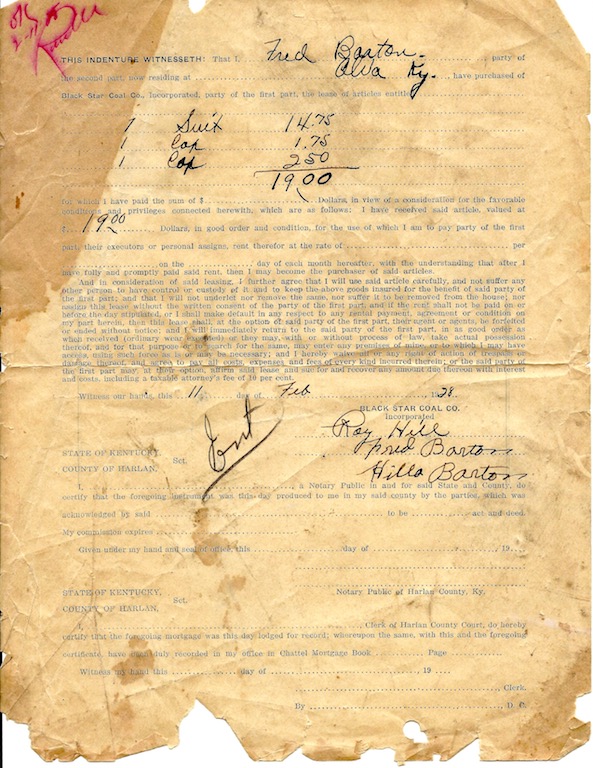 OK
THIS INDENTURE WITNESSETH: That I, Fred Barton. party of
the second part, now residing at Alva Ky. , have purchased of
Black Star Coal Co., Incorporated, party of the first part, the lease of articles entitled
1 Suit 14.75
1 Cap 1.75
1 Cap 250
19.00
for which I have paid the sum of $ Dollars, in view of a consideration for the favorable
conditions and privileges connected herewith, which are as follows: I have received said article, valued at
$ 19.00 Dollars, in good order and condition, for the use of which I am to pay party of the first
part, their executors or personal assigns, rent therefor at the rate of per
on the day of each month hereafter, with the understanding that after I
have fully and promptly paid said rent, then I may become the purchaser of said articles.
And in consideration of said leasing, I further agree that I will use said article carefully, and not suffer any
other to have control or custody of it and to keep the above goods insured for the benefit of said party of
the first part; and that I will not underlet nor remove the same, nor suffer it to be removed from the house; nor
assign this lease without the written consent of the party of the first part, and if the rent shall not be paid on or
before the day stipulated, or I shall make default in any respect to any rental payment, agreement or condition on
my part herein, then this lease shall, at the option of said party of the first part, their agent or agents, be forfeited
or ended without notice; and I will immediately return to the said party of the first part, in as good order as
when received (ordinary wear excepted) or they may, with or without process of law, take actual possession
thereof, and for that purpose or to search for the same, may enter any premises of mine, or to which I may have
access, using such force as is or may be necessary; and I hereby waive all or any right of action of trespass or
damage thereof, and agree to pay all costs, expenses and fees of every kind incurred therein; or the said party of
the first part may, at their option, affirm said lease and sue for and recover any amount due thereon with interest
and costs, including a taxable attorney's fee of 10 per cent.
Witness our hands, this 11 day of Feb 1928.
BLACK STAR COAL CO.
Incorporated
Roy Hill
Fred Barton
Hilla Barton
STATE OF KENTUCKY,
COUNTY OF HARLAN, Sct.
I, , a Notary Public in and for said State and County, do
certify that the foregoing instrument was this day produced to me in my said county by the parties, which was
acknowledged by said to be act and deed.
My commission expires
Given under my hand and seal of office, this day of , 19
Notary Public of Harlan County, Ky.
STATE OF KENTUCKY,
COUNTY OF HARLAN, Sct.
I, , Clerk of Harlan County Court, do hereby
certify that the foregoing mortgage was this day lodged for record; whereupon the same, with this and the foregoing
certificate, have been duly recorded in my office in Chattel Mortgage Book Page
Witness my hand this day of , 19
, Clerk.
By , D. C.